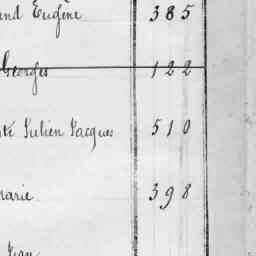 and Eugène 385
Georges 122
Julien Jacques 510
Marie 398
Jean